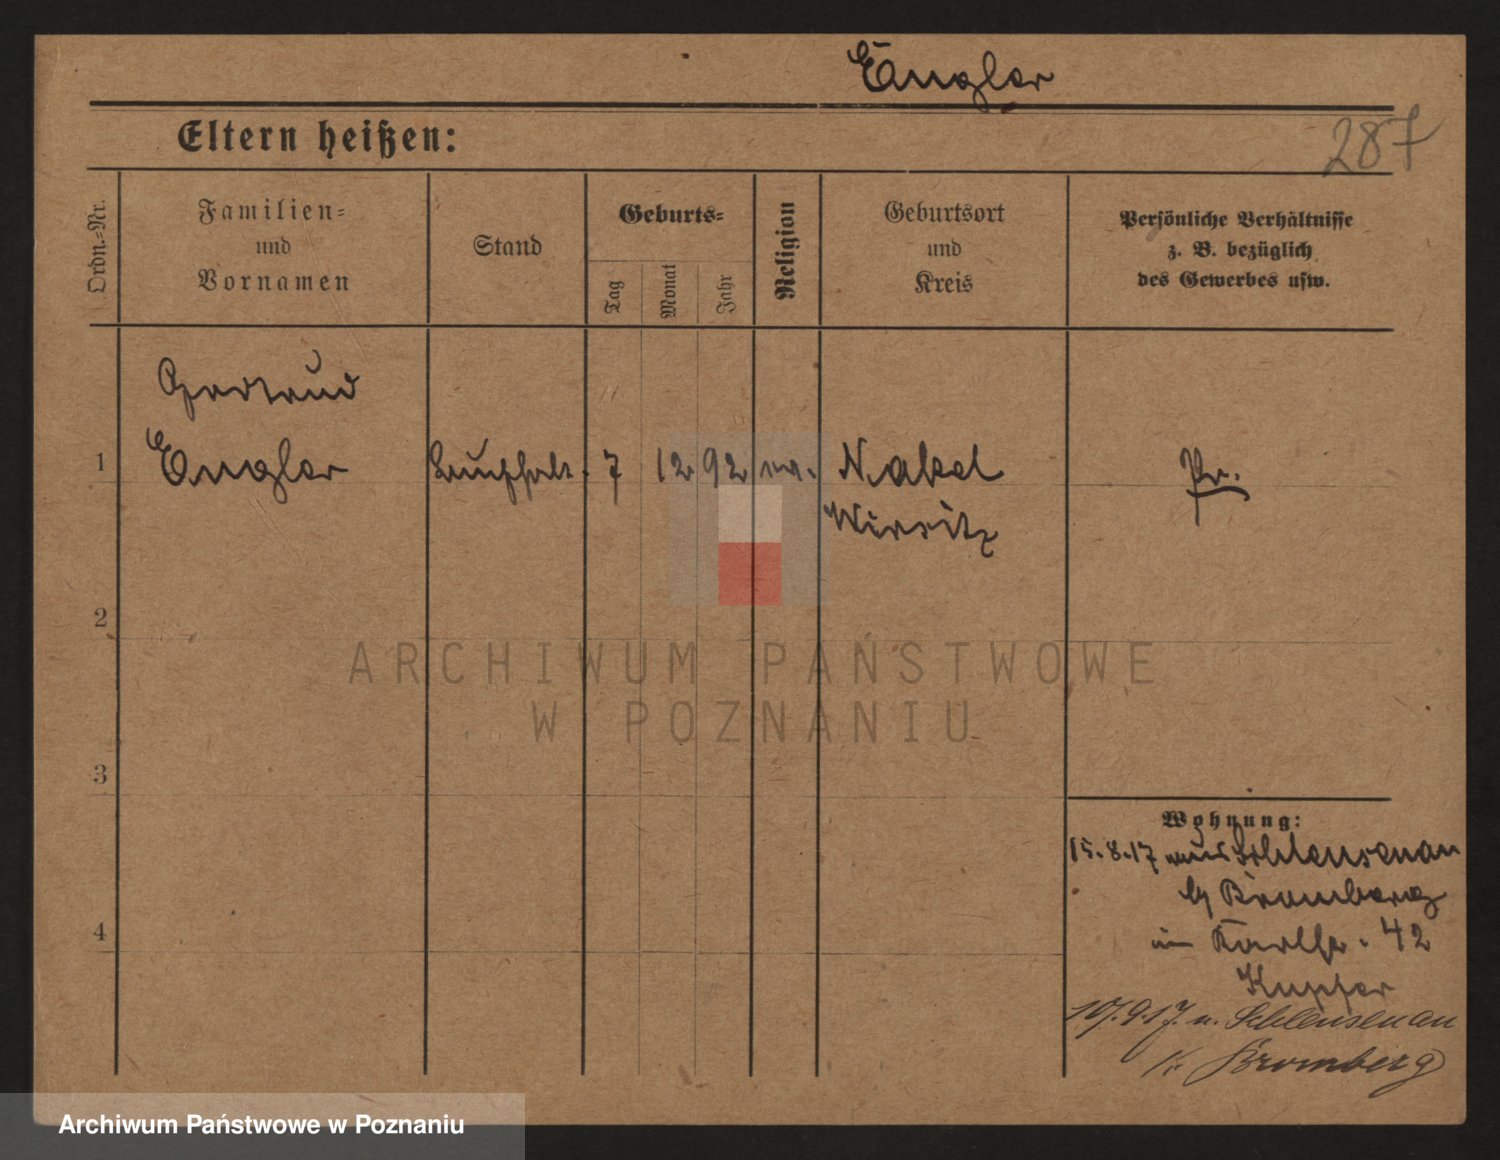 Engler
287
Eltern heißen:
Ordn.-Nr.
Familien-
und
Vornamen
Stand
Geburts-
Tag
Monat
Jahr
Religion
Geburtsort
und
Kreis
Persönliche Verhältnisse
z. B. bezüglich
des Gewerbes usw.
Gertrud
1 Engler Buchhalt. 7 12 92 Nakel Pr.
Wirsitz
2
3
4
Wohnung:
15.8.17 aus Schleusenau
b/ Bromberg
Karlstr. 42
Kupfer
10/.9.17. n. Schleusenau
Kr. Bromberg
ARCHIWUM PAŃSTWOWE
W POZNANIU
Archiwum Państwowe w Poznaniu